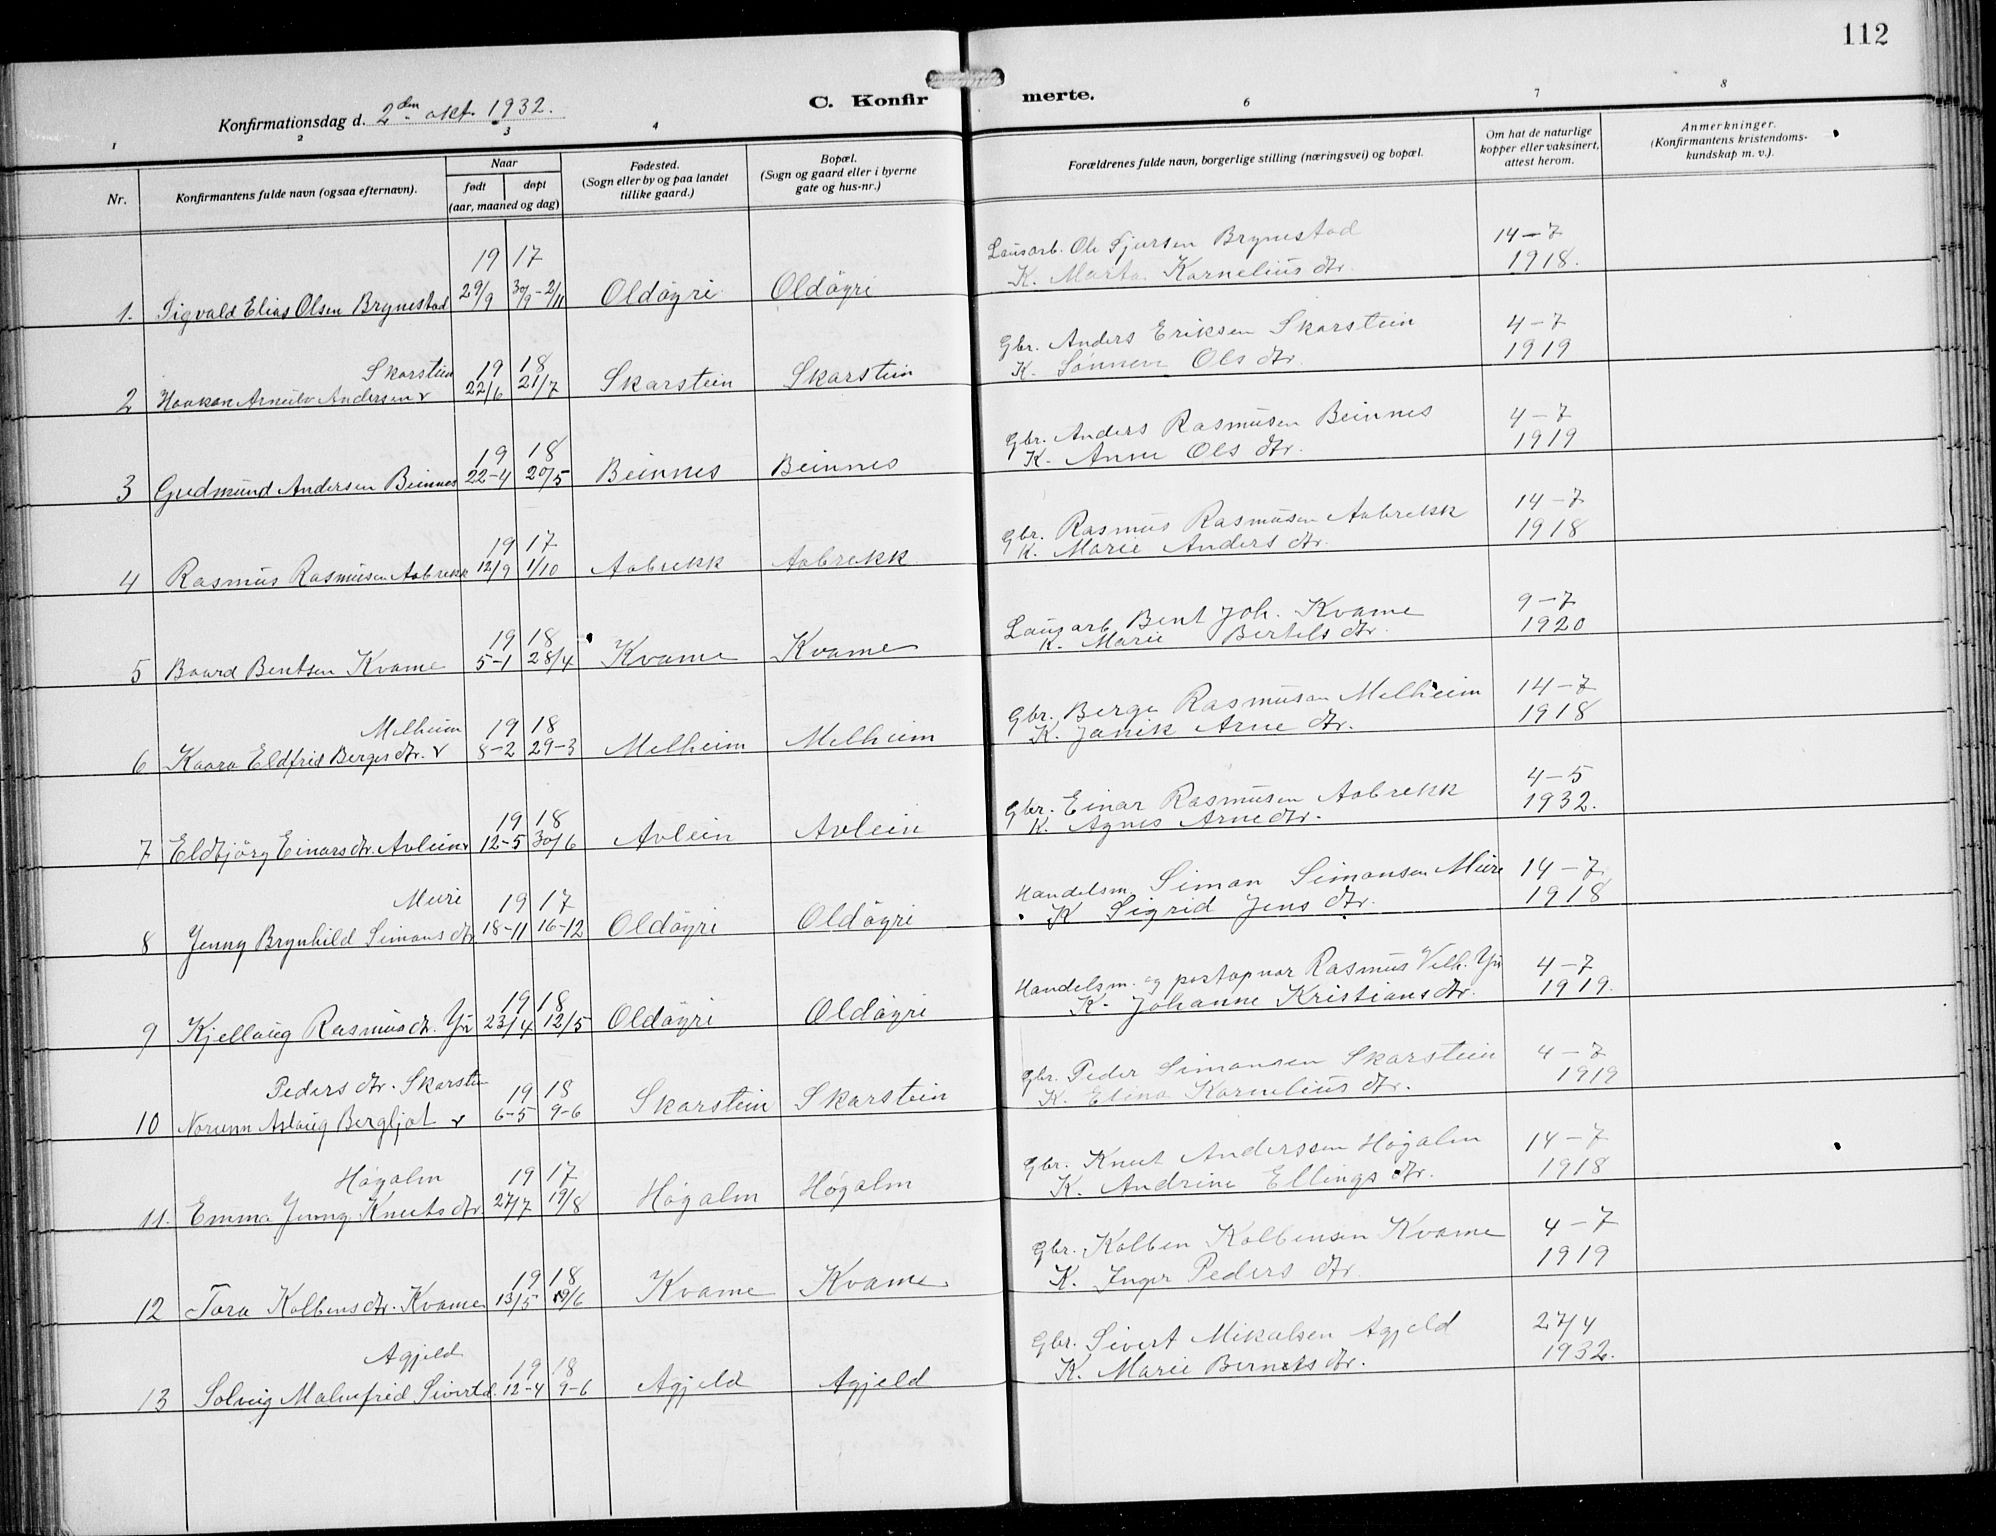 112
C. Konfirmerte.
Konfirmationsdag d. 2den okt. 1932.
1 2 3 4 6 7 8
Nr.
Konfirmantens fulde navn (ogsaa efternavn).
Naar
født døpt
(aar, maaned og dag)
Fødested.
(Sogn eller by og paa landet
tillike gaard.)
Bopæl.
(Sogn og gaard eller i byerne
gate og hus-nr.)
Forældrenes fulde navn, borgerlige stilling (næringsvei) og bopæl.
Om hat de naturlige
kopper eller vaksinert,
attest herom.
Anmerkninger.
(Konfirmantens kristendoms-
kundskap m. v.).
19 17 Lausarb. Ole Sjursen Brynestad 14-7
1. Sigvald Elias Olsen Brynestad 29/9 30/9-2/11 Oldøyri Oldøyri K. Marta Kornelius dtr. 1918.
Skarstein 19 18 Gbr. Anders Eriksen Skarstein 4-7
2 Haakon Arnulv Andersen v 22/6 21/7 Skarstein Skarstein K. Sønnev Ols dtr. 1919
19 18 Gbr. Anders Rasmusen Beinnes 4-7
3 Gudmund Andersen Beinnes 22-4 20/5 Beinnes Beinnes K. Anne Ols dtr. 1919
19 17 Gbr. Rasmus Rasmusen Aabrekk 14-7
4 Rasmus Rasmusen Aabrekk 12/9 1/10 Aabrekk Aabrekk K. Marie Anders dtr. 1918
19 18 Lausarb. Bent Joh. Kvame 9-7
5 Baard Bentsen Kvame 5-1 28/4 Kvame Kvame K. Marie Bertels dtr. 1920
Melheim 19 18 Gbr. Berge Rasmusen Melheim 14-7
6 Kaara Eldfrid Berges dtr. v 8-2 29-3 Melheim Melheim K. Janik Arne dtr. 1918
19 18 Gbr. Einar Rasmusen Aabrekk 4-5
7 Eldbjørg Einars dtr. Avlein v 12-5 30/6 Avlein Avlein K. Agnes Arne dtr. 1932.
Muri 19 17 Handelsm. Simon Simonsen Muri 14-7
8 Jenny Brynhild Simons dtr. 18-11 16-12 Oldøyri Oldøyri K Sigrid Jens dtr. 1918
19 18 Handelsm. og postopnar Rasmus Vilh. Yri 4-7
9 Kjellaug Rasmus dtr. Yri 23/4 12/5 Oldøyri Oldøyri K. Johanne Kristians dtr. 1919.
Peders dtr. Skarstein 19 18 Gbr. Peder Simonsen Skarstein 4-7
10 Norunn Aslaug Bergljot v 6-5 9-6 Skarstein Skarstein K. Elina Kornelius dtr. 1919
Høgalm 19 17 Gbr. Knut Anderssen Høgalm 14-7
11. Emma Jenny Knuts dtr. 27/7 19/8 Høgalm Høgalm K. Andrine Ellings dtr. 1918
19 18 Gbr. Kolben Kolbensen Kvame 4-7
12 Tora Kolbens dtr. Kvame 13/5 /6 Kvame Kvame K. Inger Peders dtr 1919
Agjeld 19 18 Gbr. Sivert Mikalsen Agjeld 27/4
13 Solveig Malmfrid Sivertd. 12-4 9-6 Agjeld Agjeld K. Marie Bernts dtr. 1932.